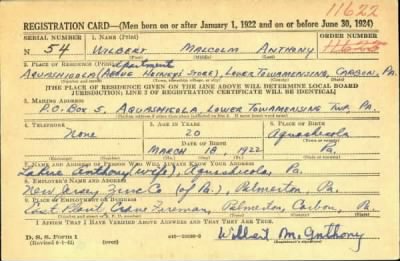 11622
REGISTRATION CARD—(Men born on or after January 1, 1922 and on or before June 30, 1924)
SERIAL NUMBER 1. NAME (Print) ORDER NUMBER
N 54 WILBERT MALCOLM ANTHONY
(First) (Middle) (Last)
2. PLACE OF RESIDENCE (Print) Apartment
AQUASHICOLA (ABOVE STORE), LOWER TOWAMENSING, CARBON, PA.
[THE PLACE OF RESIDENCE GIVEN ON THE LINE ABOVE WILL DETERMINE LOCAL BOARD
JURISDICTION; LINE 2 OF REGISTRATION CERTIFICATE WILL BE IDENTICAL]
3. MAILING ADDRESS
P.O. BOX 5, AQUASHICOLA, LOWER TOWAMENSING TWP. PA.
4. TELEPHONE 5. AGE IN YEARS 6. PLACE OF BIRTH
None 20 Aquashicola
DATE OF BIRTH
MARCH 18, 1922 Pa.
7. NAME AND ADDRESS OF PERSON WHO WILL ALWAYS KNOW YOUR ADDRESS
Anthony (wife), Aquashicola, Pa.
8. EMPLOYER'S NAME AND ADDRESS
New Jersey Zinc Co (of Pa.), Palmerton, Pa.
9. PLACE OF EMPLOYMENT OR BUSINESS
East Plant Crane Fireman, Palmerton, Carbon, Pa.
I AFFIRM THAT I HAVE VERIFIED ABOVE ANSWERS AND THAT THEY ARE TRUE.
D. S. S. Form 1
(Revised 6-1-42) Wilbert M. Anthony